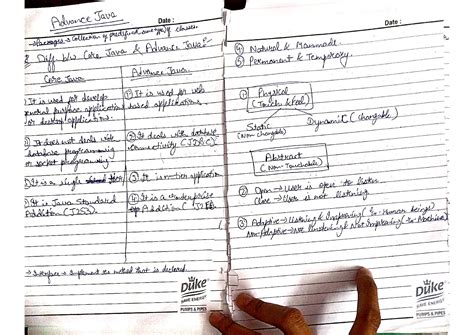 Advance Java
Date :
→ Packages → Collection of predefined classes.
Diff b/w Core Java & Advance Java:-
Core Java
Advance Java
① It is used for develop
general purpose application
or desktop application.
① It is used for web
based applications.
② It does not deals with
database programming
or socket programming
② It deals with database
connectivity (JDBC)
③ It is a single
③ It is n-tier application
④ It is Java Standard
Addition (J2SE)
④ It is a enterprise
Addition (J2EE)
→ Interface → Implement the method that is declared.
Duke
WAVE ENERGY
PUMPS & PIPES
Date :
④ Natural & Manmade.
⑤ Permanent & Temporary.
① Physical
(Touch & feel)
Static
(Non changable)
Dynamic (changable)
Abstract
(Non-Touchable)
② Open → User is open to listen
Close → User is not listening.
③ Adaptive → Listening & Improving (In-Human beings)
Non-Adaptive → Not listening & Not Improving (In-Machine)
Duke
WAVE ENERGY
PUMPS & PIPES